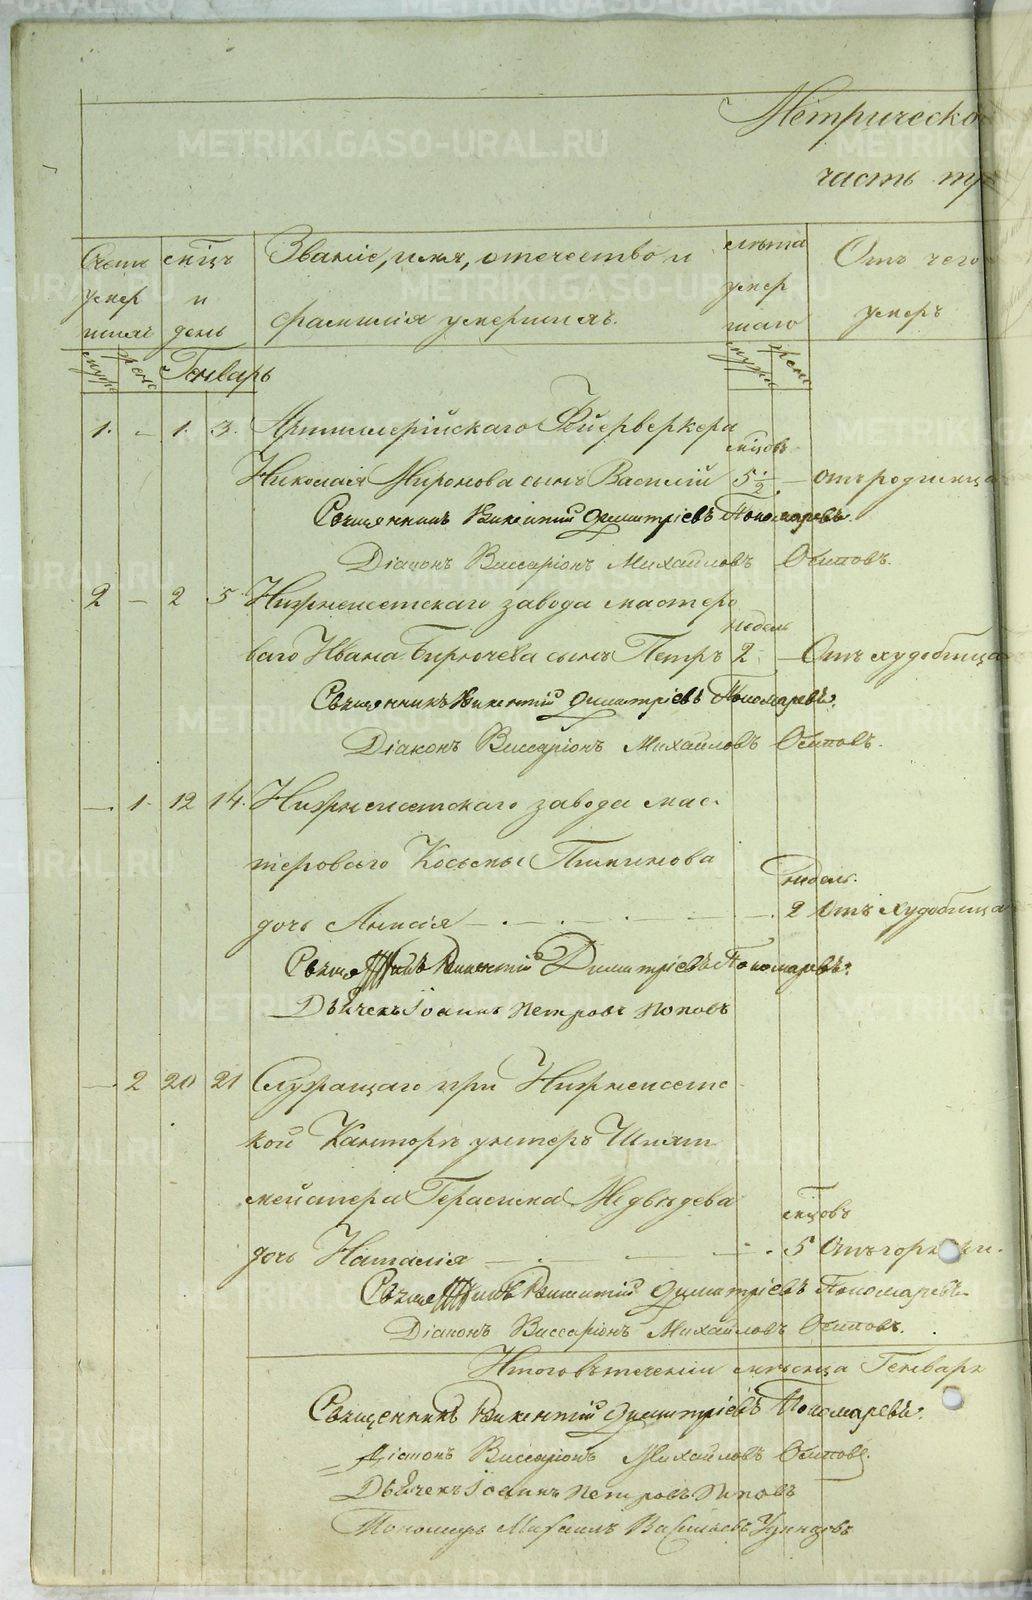 Метрическо
часть тре
Счетъ мсцъ Званіе, имя, отечество и лѣта Отъ чего
умер и умер
шихъ день фамилія умершихъ. шаго умеръ
муж жен Генварь муж жен
1. – 1. 3. Артиллерійскаго Фейерверкера
мсцовъ
Николая Миронова сынъ Василій 5 1/2. – отъ родимца
Священникъ Викентій Димитріевъ Пономаревъ.
Діаконъ Виссаріонъ Михайловъ Осиповъ.
2 – 2 5 Нижнеисетскаго завода мастеро
недель
ваго Ивана Бирючева сынъ Петръ 2. – Отъ худобища
Священникъ Викентій Димитріевъ Пономаревъ.
Діаконъ Виссаріонъ Михайловъ Осиповъ.
– 1. 12 14. Нижнеисетскаго завода мас-
тероваго Косьмы Пинигова
недель.
дочь Анисія – . – . – . – . 2 Отъ худобища
Священникъ Викентій Димитріевъ Пономаревъ.
Дьячекъ Іоаннъ Петровъ Поповъ
– 2 20 21 Служащаго при Нижнеисетс-
кой Канторѣ унтеръ Шихт
мейстера Герасима Медвѣдева
мсцовъ
дочь Наталія – . – . 5 Отъ гор
Священникъ Викентій Димитріевъ Пономаревъ
Діаконъ Виссаріонъ Михайловъ Осиповъ.
Итого въ теченіи месяца Генваря
Священникъ Викентій Димитріевъ Пономаревъ.
Діаконъ Виссаріонъ Михайловъ Осиповъ.
Дьячекъ Іоаннъ Петровъ Поповъ
Пономарь Михаилъ Васильевъ Удинцевъ
METRIKI.GASO-URAL.RU